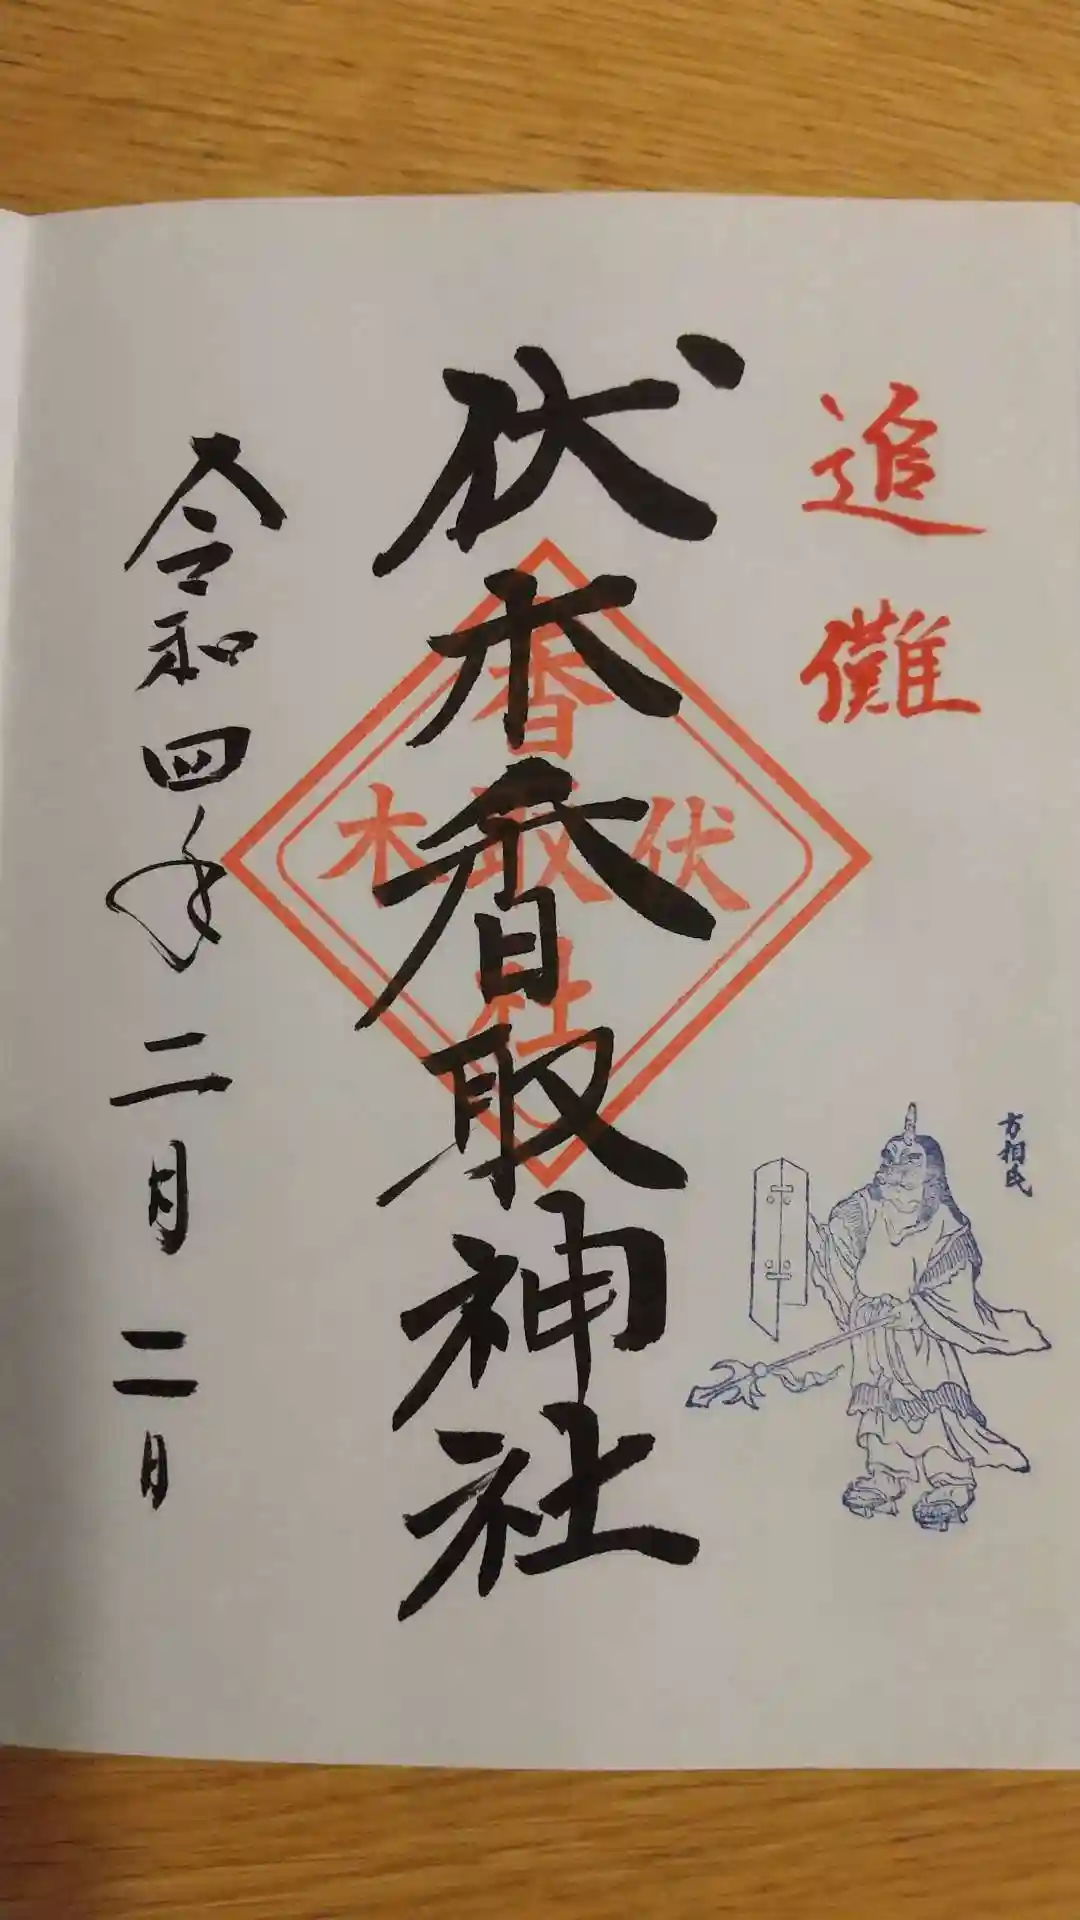 追儺
方相氏
伏木香取神社
香
伏取木
社
令和四年二月二日